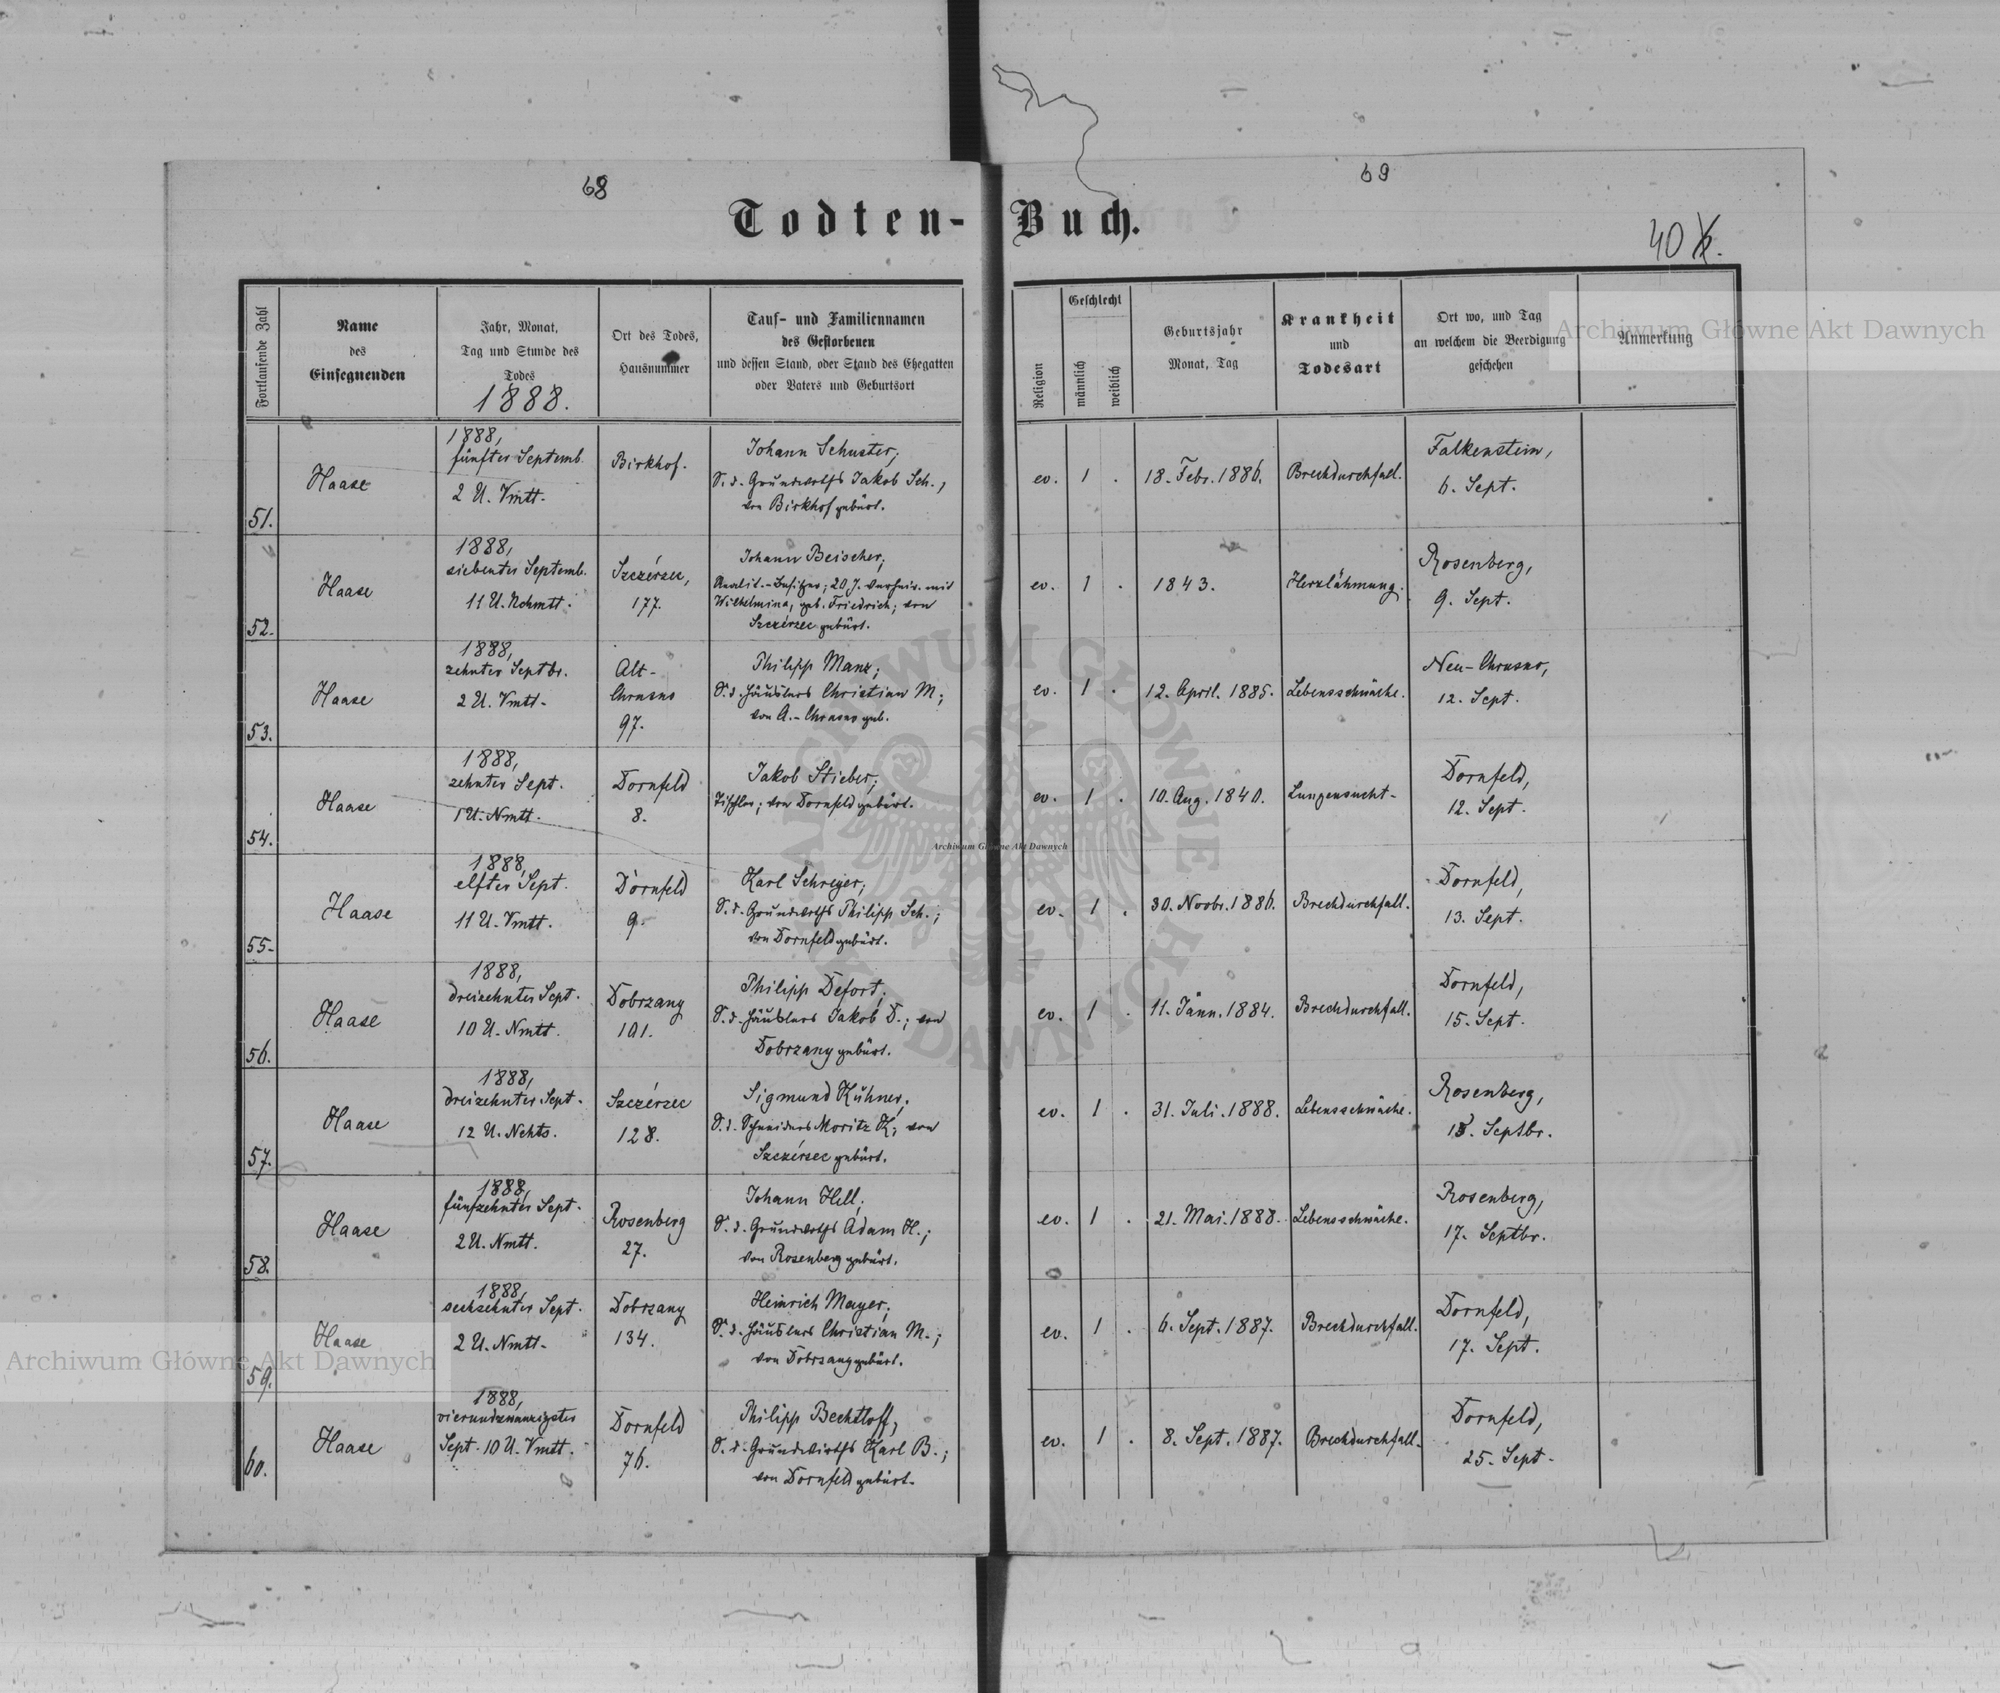 68
69
Todten-Buch.
40
Fortlaufende Zahl
Name
des
Einsegnenden
Jahr, Monat,
Tag und Stunde des
Todes
1888.
Ort des Todes,
Hausnummer
Tauf- und Familiennamen
des Gestorbenen
und dessen Stand, oder Stand des Ehegatten
oder Vaters und Geburtsort
Religion
Geschlecht
männlich
weiblich
Geburtsjahr
Monat, Tag
Krankheit
und
Todesart
Ort wo, und Tag
an welchem die Beerdigung
geschehen
Anmerkung
51.
Haase
1888,
fünfter Septemb.
2 U. Vmtt.
Birkhof.
Johann Schuster,
S. d. Grundwirths Jakob Sch.,
von Birkhof gebürt.
ev. 1 .
18. Febr. 1886.
Brechdurchfall.
Falkenstein,
6. Sept.
52.
Haase
1888,
siebenter Septemb.
11 U. Nchmtt.
Szczérzec,
177.
Johann Beischer;
Realit.-Besitzer; 20 J. verheir. mit
Wilhelmina, geb. Friedrich; von
Szczérzec gebürt.
ev. 1 .
1843.
Herzlähmung.
Rosenberg,
9. Sept.
53.
Haase
1888,
zehnter Septbr.
2 U. Vmtt.
Alt-
Chrusno
97.
Philipp Manz;
S. d. Häuslers Christian M;
von A.-Chrusno geb.
ev. 1 .
12. April. 1885.
Lebensschwäche.
Neu-Chrusno,
12. Sept.
54.
Haase
1888,
zehnter Sept.
1 U. Nmtt.
Dornfeld
8.
Jakob Stieber;
Tischler; von Dornfeld gebürt.
ev. 1 .
10. Aug. 1840.
Lungensucht.
Dornfeld,
12. Sept.
55.
Haase
1888,
elfter Sept.
11 U. Vmtt.
Dornfeld
9.
Karl Schreyer;
S. d. Grundwirths Philipp Sch.;
von Dornfeld gebürt.
ev. 1 .
30. Novbr. 1886.
Brechdurchfall.
Dornfeld,
13. Sept.
56.
Haase
1888,
dreizehnter Sept.
10 U. Nmtt.
Dobrzany
101.
Philipp Defort;
S. d. Häuslers Jakob D.; von
Dobrzany gebürt.
ev. 1 .
11. Jänn. 1884.
Brechdurchfall.
Dornfeld,
15. Sept.
57.
Haase
1888,
dreizehnter Sept.
12 U. Nchts.
Szczérzec
128.
Sigmund Kühner,
S. d. Schneiders Moritz K; von
Szczérzec gebürt.
ev. 1 .
31. Juli. 1888.
Lebensschwäche.
Rosenberg,
Septbr.
58.
Haase
1888,
fünfzehnter Sept.
2 U. Nmtt.
Rosenberg
27.
Johann Hell,
S. d. Grundwirths Adam H.;
von Rosenberg gebürt.
ev. 1 .
21. Mai. 1888.
Lebensschwäche.
Rosenberg,
17. Septbr.
59.
Haase
1888,
sechzehnter Sept.
2 U. Nmtt.
Dobrzany
134.
Heinrich Mayer;
S. d. Häuslers Christian M.;
von Dobrzany gebürt.
ev. 1 .
6. Sept. 1887.
Brechdurchfall.
Dornfeld,
17. Sept.
60.
Haase
1888,
vierundzwanzigster
Sept. 10 U. Vmtt.
Dornfeld
76.
Philipp Bechtloff,
S. d. Grundwirths Karl B.;
von Dornfeld gebürt.
ev. 1 .
8. Sept. 1887.
Brechdurchfall.
Dornfeld,
25. Sept.
Archiwum Główne Akt Dawnych
Archiwum Główne Akt Dawnych
Archiwum Główne Akt Dawnych
ARCHIWUM GŁÓWNE AKT DAWNYCH